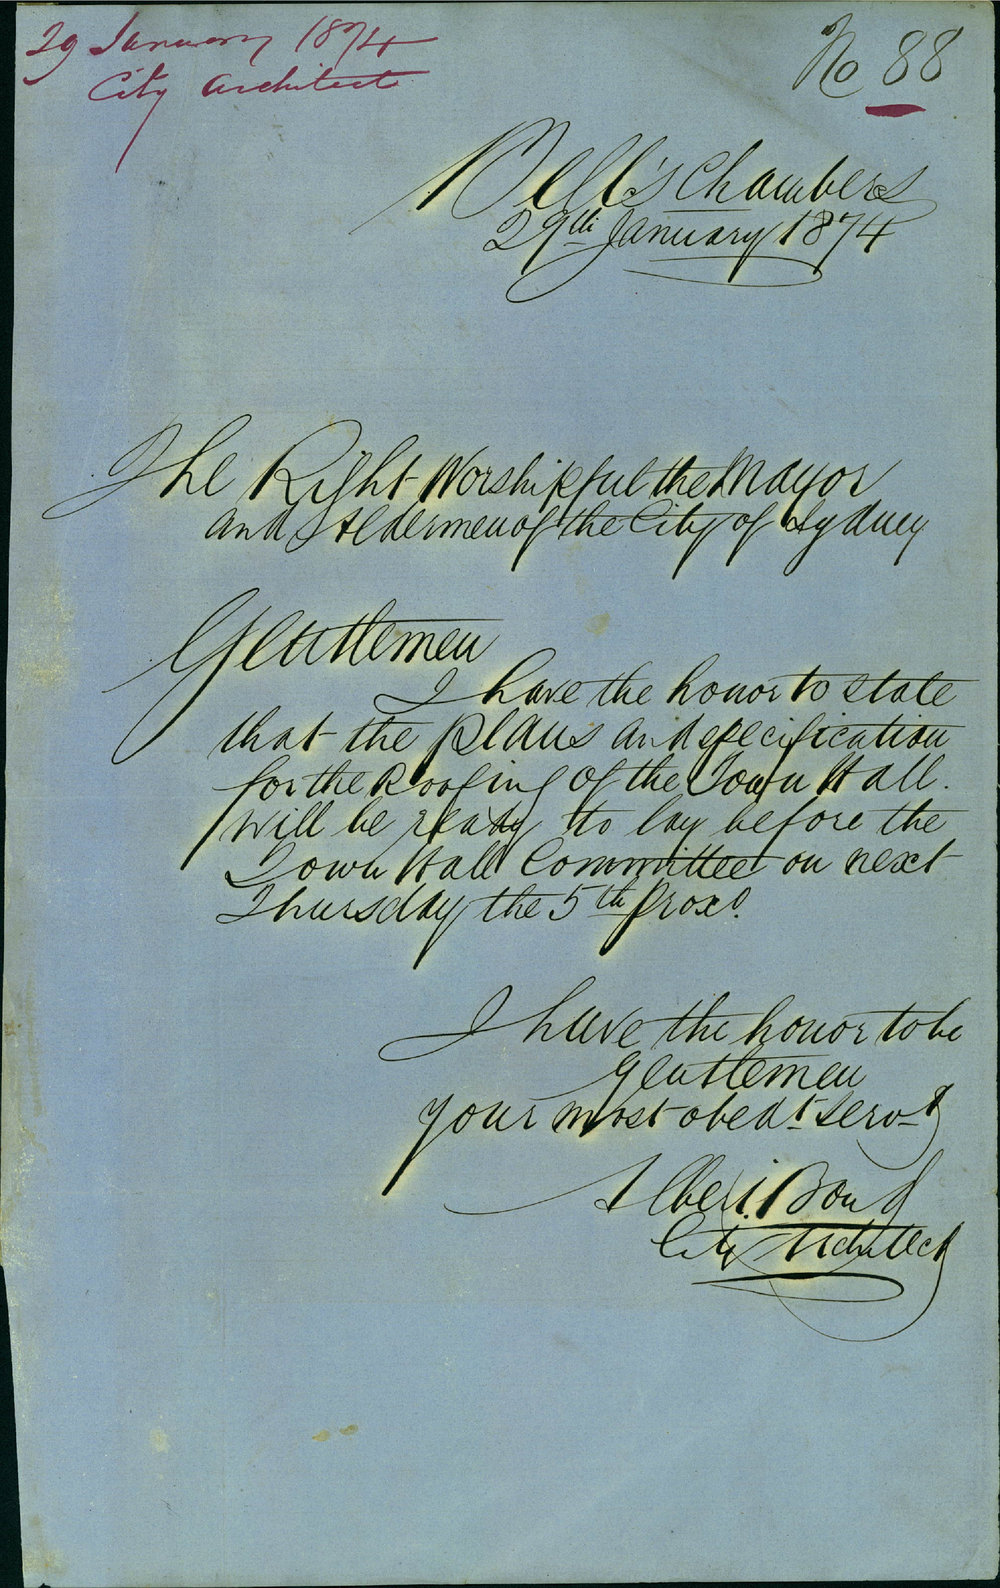 29 January 1874
City Architect
No 88
Bell's Chambers
29th January 1874
The Right Worshipful the Mayor
and Aldermen of the City of Sydney
Gentlemen
I have the honor to state
that the plans and specification
for the Roofing of the Town Hall.
will be ready to lay before the
Town Hall Committee on next
Thursday the 5th proxo.
I have the honor to be
Gentlemen
your most obedt servt
Albert Bond
City Architect